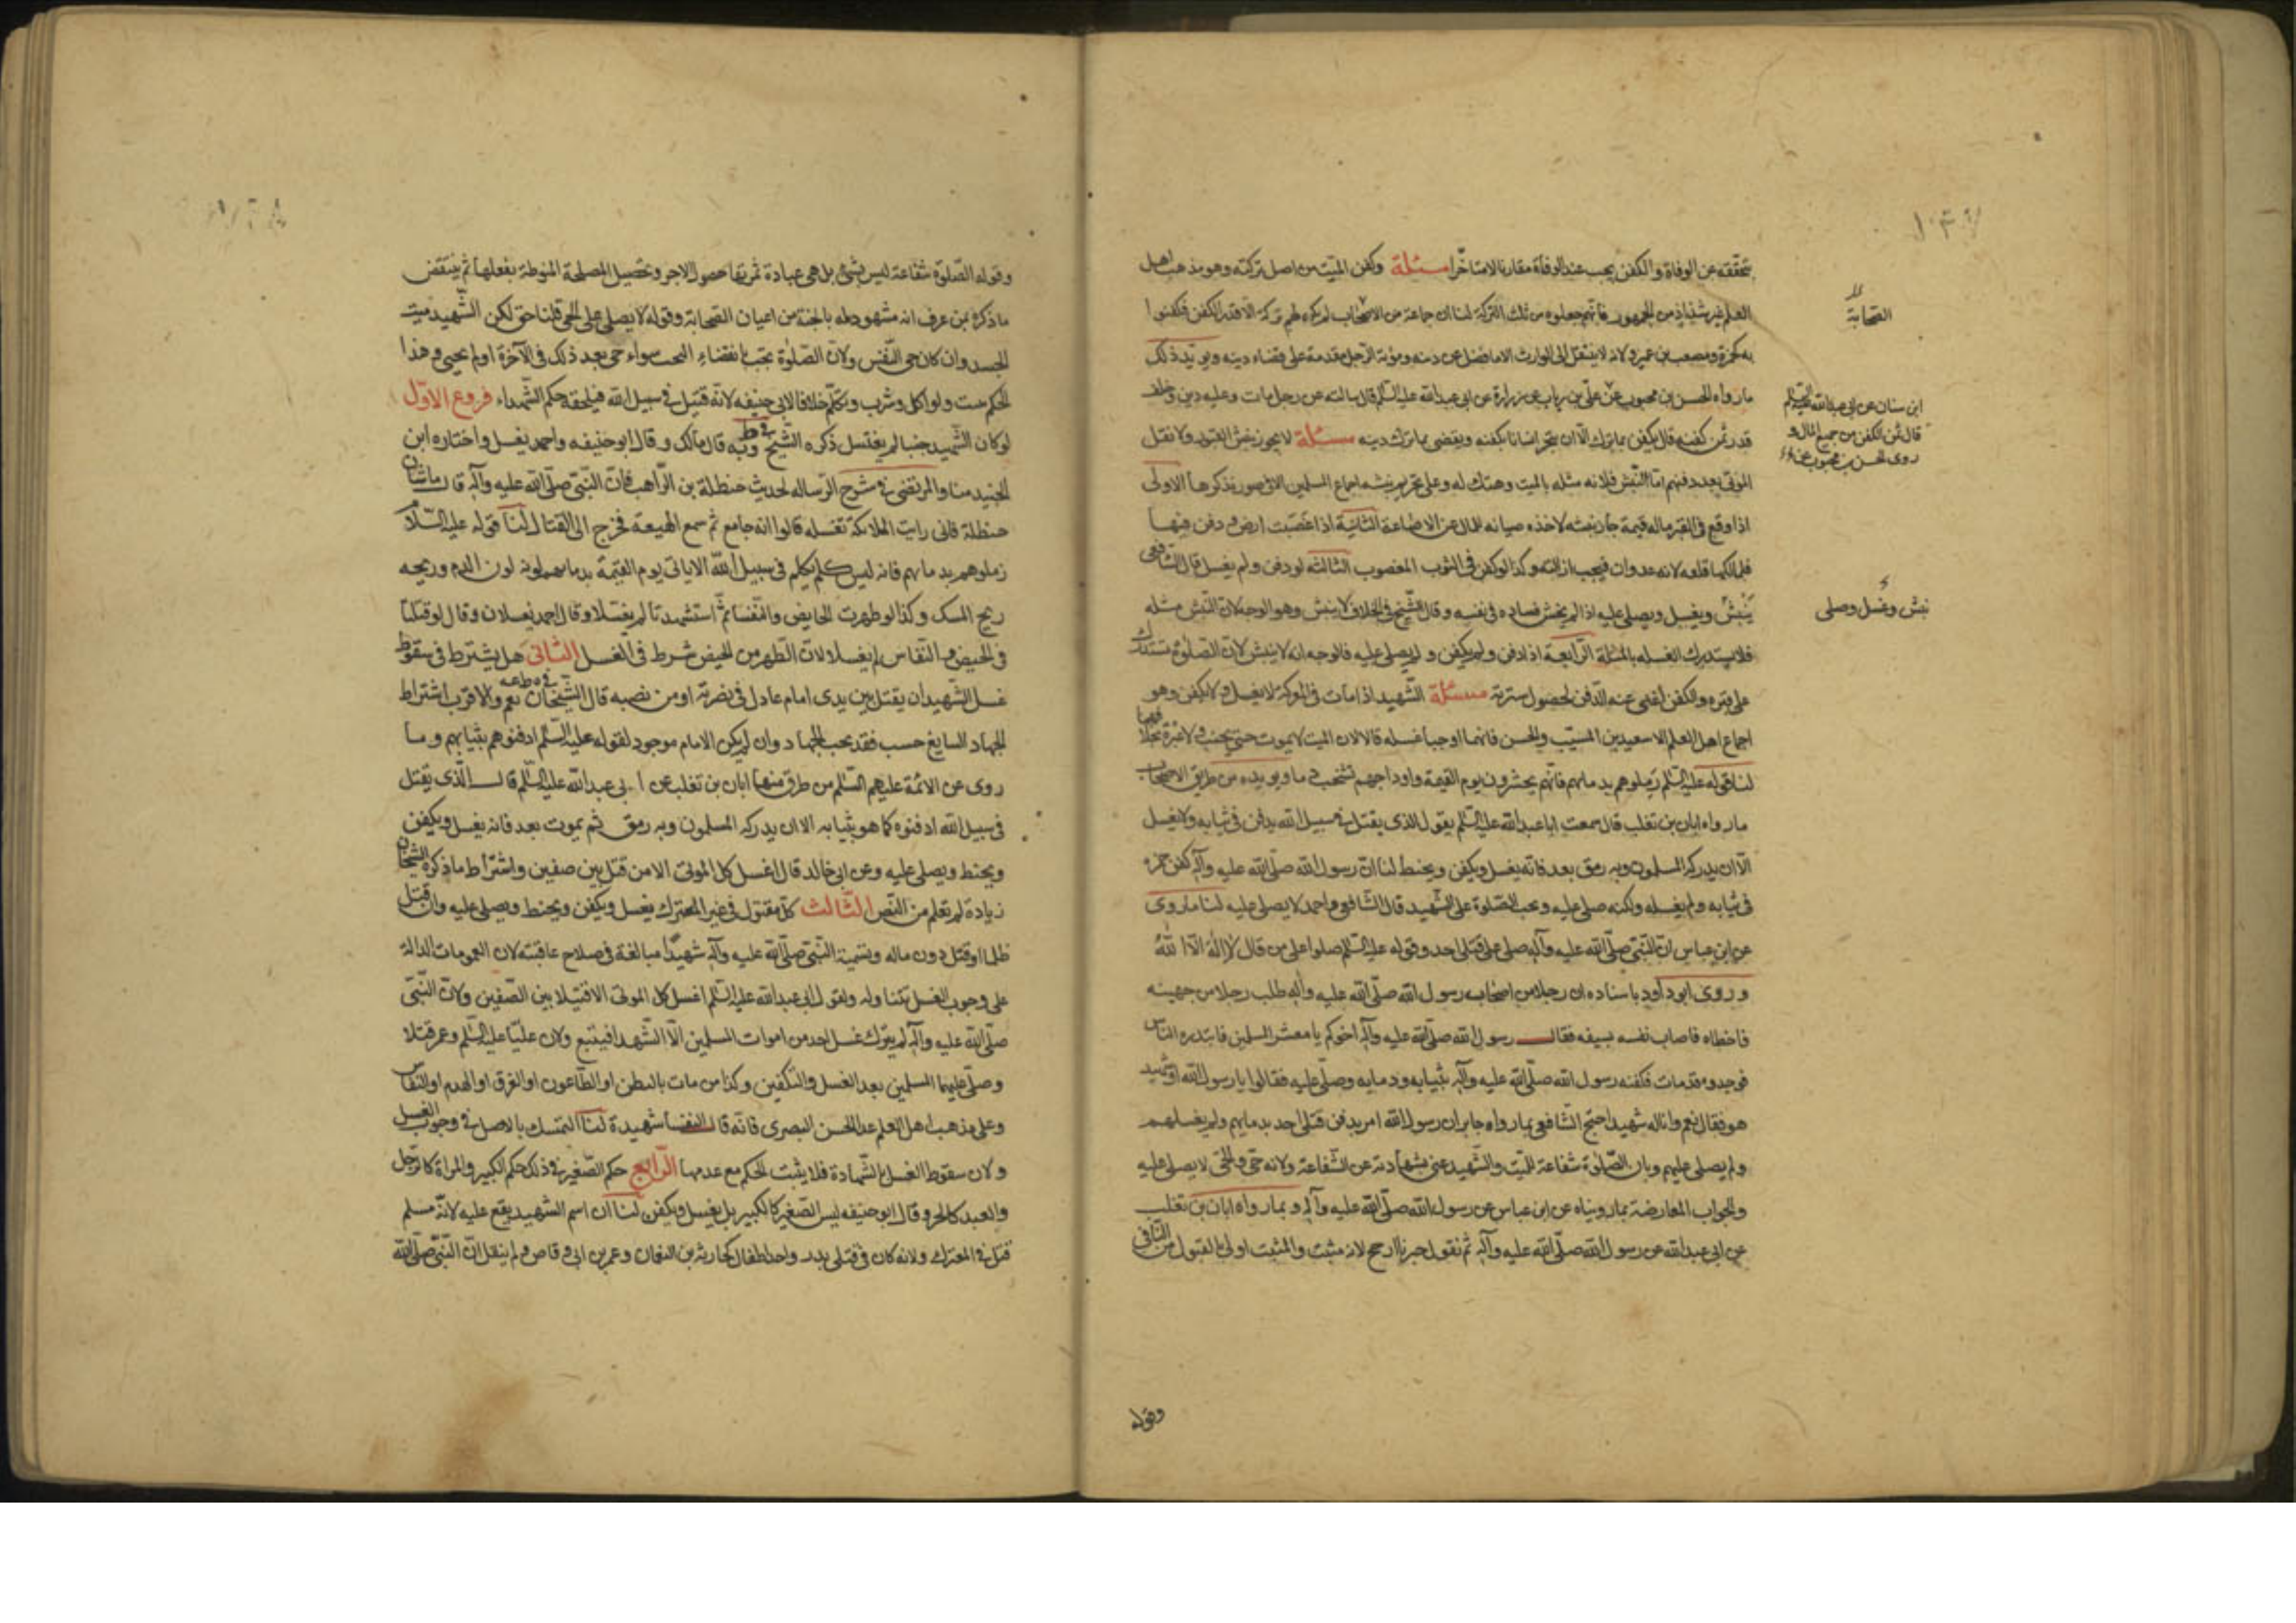 تحققه عن الوفاة والكفن يجب عند الوفاة مقارنا لا متاخرا مسئلة وكفن الميت من اصل تركته وهو مذهب اهل
العلم غير شذاذ من الجمهور فانهم جعلوه من ثلث التركة لنا ان جماعة من الاصحاب لم يكن لهم تركة الا قدر الكفن فكفنوا
به كحمزة ومصعب بن عمير ولانه لا ينتقل الى الوارث الا ما فضل عن دينه ومؤنة الرجل مقدمة على قضاء دينه ويؤيد ذلك
ما رواه الحسن بن محبوب عن علي بن رياب عن زرارة عن ابي عبدالله عليه السلم قال سالته عن رجل مات وعليه دين وخلف
قدر ثمن كفنه قال يكفن بما ترك الا ان يتجر انسانا بكفنه ويقضى بما ترك دينه مسئلة لا يجوز نبش القبور ولا نقل
الموتى بعد دفنهم اما النبش فلانه مثله بالميت وهتك له وعلى تحريم نبشه اجماع المسلمين الا في صور نذكرها الاولى
اذا وقع في القبر ماله قيمة جاز نبشه لاخذه صيانه للمال عن الاضاعة الثانية اذا غصبت ارض ودفن فيها
فلمالكها قلعه لانه عدوان فيجب ازالته وكذا لو كفن في الثوب المغصوب الثالثة لو دفن ولم يغسل قال الشافعي
ينبش ويغسل ويصلى عليه اذا لم يخش فساده في نفسه وقال الشيخ في الخلاف لا ينبش وهو الوجه لان النبش مثله
فلا يستدرك الغسله بالمثلة الرابعة اذا دفن ولم يكفن و لم يصل عليه فالوجه انه لا ينبش لان الصلوة تستدرك
على قبره والكفن اغنى عنه الدفن لحصول سترته مسئلة الشهيد اذا مات في المعركة لا يغسل ولا يكفن وهو
اجماع اهل العلم الا سعيد بن المسيب والحسن فانهما اوجبا غسله قالا لان الميت لا يموت حتى يجنب ولا عبرة بخلافهما
لنا قوله عليه السلم زملوهم بدمائهم فانهم يحشرون يوم القيمة واوداجهم تشخب دما ويؤيده من طريق الاصحاب
ما رواه ابان بن تغلب قال سمعت ابا عبدالله عليه السلم يقول الذي يقتل في سبيل الله يدفن في ثيابه ولا يغسل
الا ان يدركه المسلمون وبه رمق بعد فانه يغسل ويكفن ويحنط لنا ان رسول الله صلى الله عليه وآله كفن حمزه
في ثيابه ولم يغسله ولكنه صلى عليه وتجب الصلوة على الشهيد قال الشافعي واحمد لا يصلى عليه لنا ما روى
عن ابن عباس ان النبي صلى الله عليه وآله صلى على قتلى احد وقوله عليه السلم صلوا على من قال لا اله الا الله
وروى ابو داود باسناده ان رجلا من اصحاب رسول الله صلى الله عليه وآله طلب رجلا من جهينه
فاخطاه فاصاب نفسه بسيفه فقال رسول الله صلى الله عليه وآله اخوكم يا معشر المسلمين فابتدره الناس
فوجدوه قد مات فكفنه رسول الله صلى الله عليه وآله بثيابه ودمايه وصلى عليه فقالوا يا رسول الله اشهيد
هو فقال نعم وانا له شهيد احتج الشافعي بما رواه جابر ان رسول الله امر بدفن قتلى احد بدمايهم ولم يغسلهم
ولم يصلى عليهم وبان الصلوة شفاعة للميت والشهيد غنى بشهادته عن الشفاعة ولانه حي والحي لا يصلى عليه
والجواب المعارضة بما رويناه عن ابن عباس عن رسول الله صلى الله عليه وآله و بما رواه ابان بن تغلب
عن ابي عبدالله عن رسول الله صلى الله عليه وآله ثم نقول خبرنا ارجح لانه مثبت والمثبت اولى بالقبول من النافي
وقوله
الصحابة
ابن سنان عن ابي عبدالله عليه السلم
قال ثمن الكفن من جميع المال و
روى الحسن بن محبوب عن
نبش وغسل وصلى
وقوله الصلوة شفاعة ليس بشيء بل هي عبادة ثمرتها حصول الاجر وتحصيل المصلحة المنوطة بفعلها ثم ينتقض
ما ذكره بمن عرف انه مشهود له بالجنة من اعيان الصحابة وقوله لا يصلى على الحي قلنا حق لكن الشهيد ميت
الجسد وان كان حي النفس ولان الصلوة تجب بانقضاء النحب سواء حي بعد ذلك في الآخرة اولم يحيى وهذا
الحكم يثبت ولو اكل وشرب وتكلم خلافا لابي حنيفه لانه قتيل في سبيل الله فيلحقه حكم الشهداء فروع الاول
لو كان الشهيد جنبا لم يغتسل ذكره الشيخ في ط وبه قال مالك وقال ابو حنيفه واحمد يغسل واختاره ابن
الجنيد منا والمرتضى في شرح الرساله لحديث حنظلة بن الراهب فان النبي صلى الله عليه وآله قال ما شان
حنظلة فاني رايت الملائكة تغسله قالوا انه جامع ثم سمع الهيعة فخرج الى القتال لنا قوله عليه السلام
زملوهم بدمائهم فانه ليس كلم يكلم في سبيل الله الا ياتي يوم القيمة بدمائهم لونه لون الدم وريحه
ريح المسك وكذا لو طهرت الحايض والنفساء ثم استشهدتا لم يغسلا وقال احمد يغسلان وقال لو قتلتا
في الحيض والنفاس لم يغسلا لان الطهر من الحيض شرط في الغسل الثاني هل يشترط في سقوط
غسل الشهيد ان يقتل بين يدي امام عادل في نصرته او من نصبه قال الشيخان نعم والاقرب اشتراط
الجهاد السايغ حسب فقد يجب الجهاد وان لم يكن الامام موجود لقوله عليه السلم ادفنوهم بثيابهم وما
روى عن الائمة عليهم السلم من طرق منها ابان بن تغلب عن ابي عبدالله عليه السلم قال الذي يقتل
في سبيل الله ادفنوه كما هو بثيابه الا ان يدركه المسلمون وبه رمق ثم يموت بعد فانه يغسل ويكفن
ويحنط ويصلى عليه وعن ابي خالد قال اغسل كل الموتى الا من قتل بين صفين واشتراط ما ذكره الشيخان
زيادة لم تعلم من النص الثالث كل مقتول في غير المعترك يغسل ويكفن ويحنط ويصلى عليه وان قتل
ظلما او قتل دون ماله وتسمية النبي صلى الله عليه وآله شهيدا مبالغة في صلاح عاقبته لان العمومات الدالة
على وجوب الغسل تتناوله ولقول ابي عبدالله عليه السلم اغسل كل الموتى الا قتيلا بين الصفين ولان النبي
صلى الله عليه وآله لم يترك غسل احد من اموات المسلمين الا الشهدا فيتبع ولان عليا عليه السلم وعمر قتلا
وصلى عليهما المسلمين بعد الغسل والتكفين وكذا من مات بالبطن او الطاعون او الغرق او الهدم او النفاس
وعلى مذهب اهل العلم عدا الحسن البصري فانه قال النفساء شهيدة لنا التمسك بالاصل في وجوب الغسل
ولان سقوط الغسل بالشهادة فلا يثبت الحكم مع عدمها الرابع حكم الصغير في ذلك حكم الكبير والمراة كالرجل
والعبد كالحر وقال ابو حنيفه ليس الصغير كالكبير بل يغسل ويكفن لنا ان اسم الشهيد يقع عليه لانه مسلم
قتل في المعترك ولانه كان في قتلى بدر واحد اطفال كحارثه بن النعمان وعمر بن ابي وقاص ولم ينقل ان النبي صلى الله